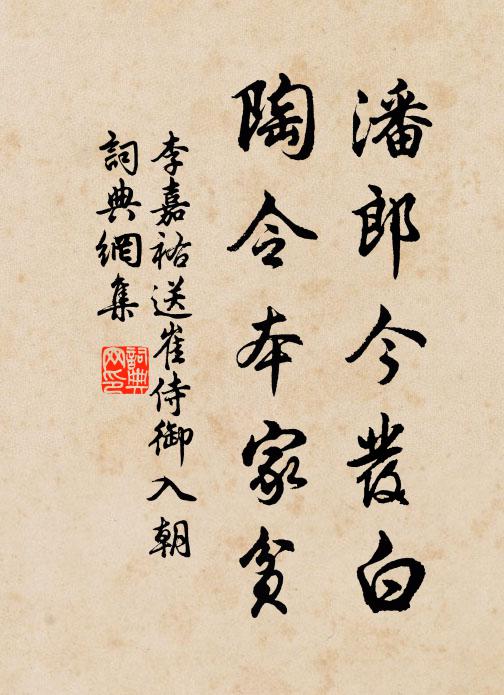 潘郎今發白
陶令本家貧
李嘉祐送崔侍御入朝
詞典網集
詞典
网印